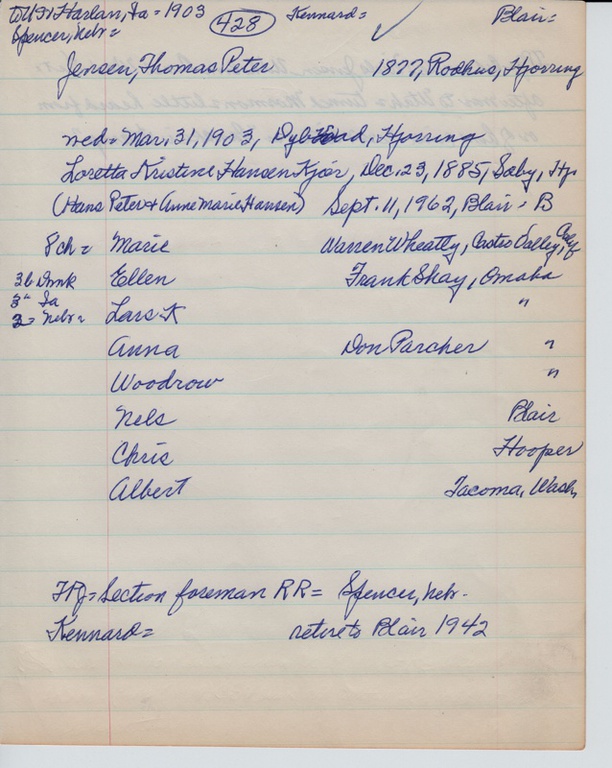 to US = Harlan, Ia = 1903 428 Kennard = Blair =
Spencer, Nebr =
Jensen, Thomas Peter 1877, Rodhus, Hjorring
wed = Mar. 31, 1903, Hjorring
Loretta Kristine Hansen Kjör, Dec. 23, 1885, Saby, Hj.
(Hans Peter + Anne Marie Hansen) Sept. 11, 1962, Blair = B
8 ch = Marie Warren Wheatly, Castro Valley, Calif
3 b Dmk Ellen Frank Shay, Omaha
3 " Ia
3 = Nebr = Lars K "
Anna Don Parcher "
Woodrow "
Nels Blair
Chris Hooper
Albert Tacoma, Wash,
= Section foreman RR = Spencer, Nebr.
Kennard = retire to Blair 1942